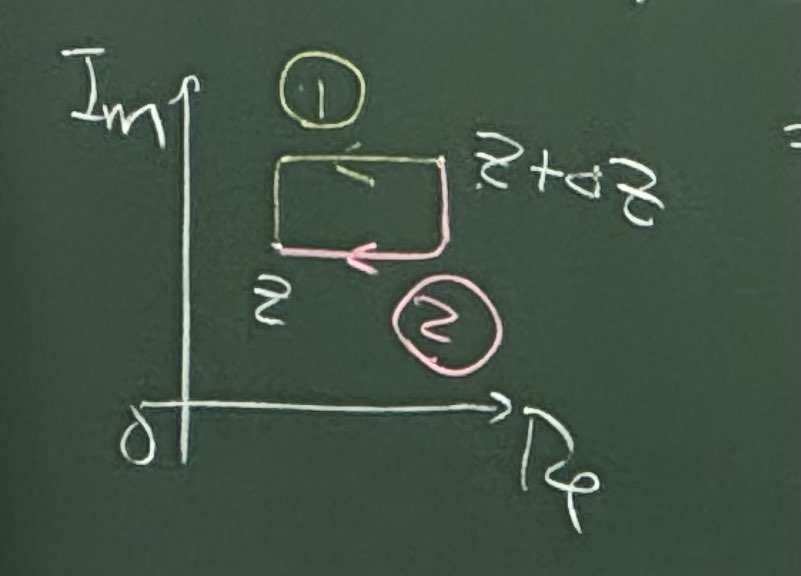 Im
①
z+Δz
z
②
0
Re